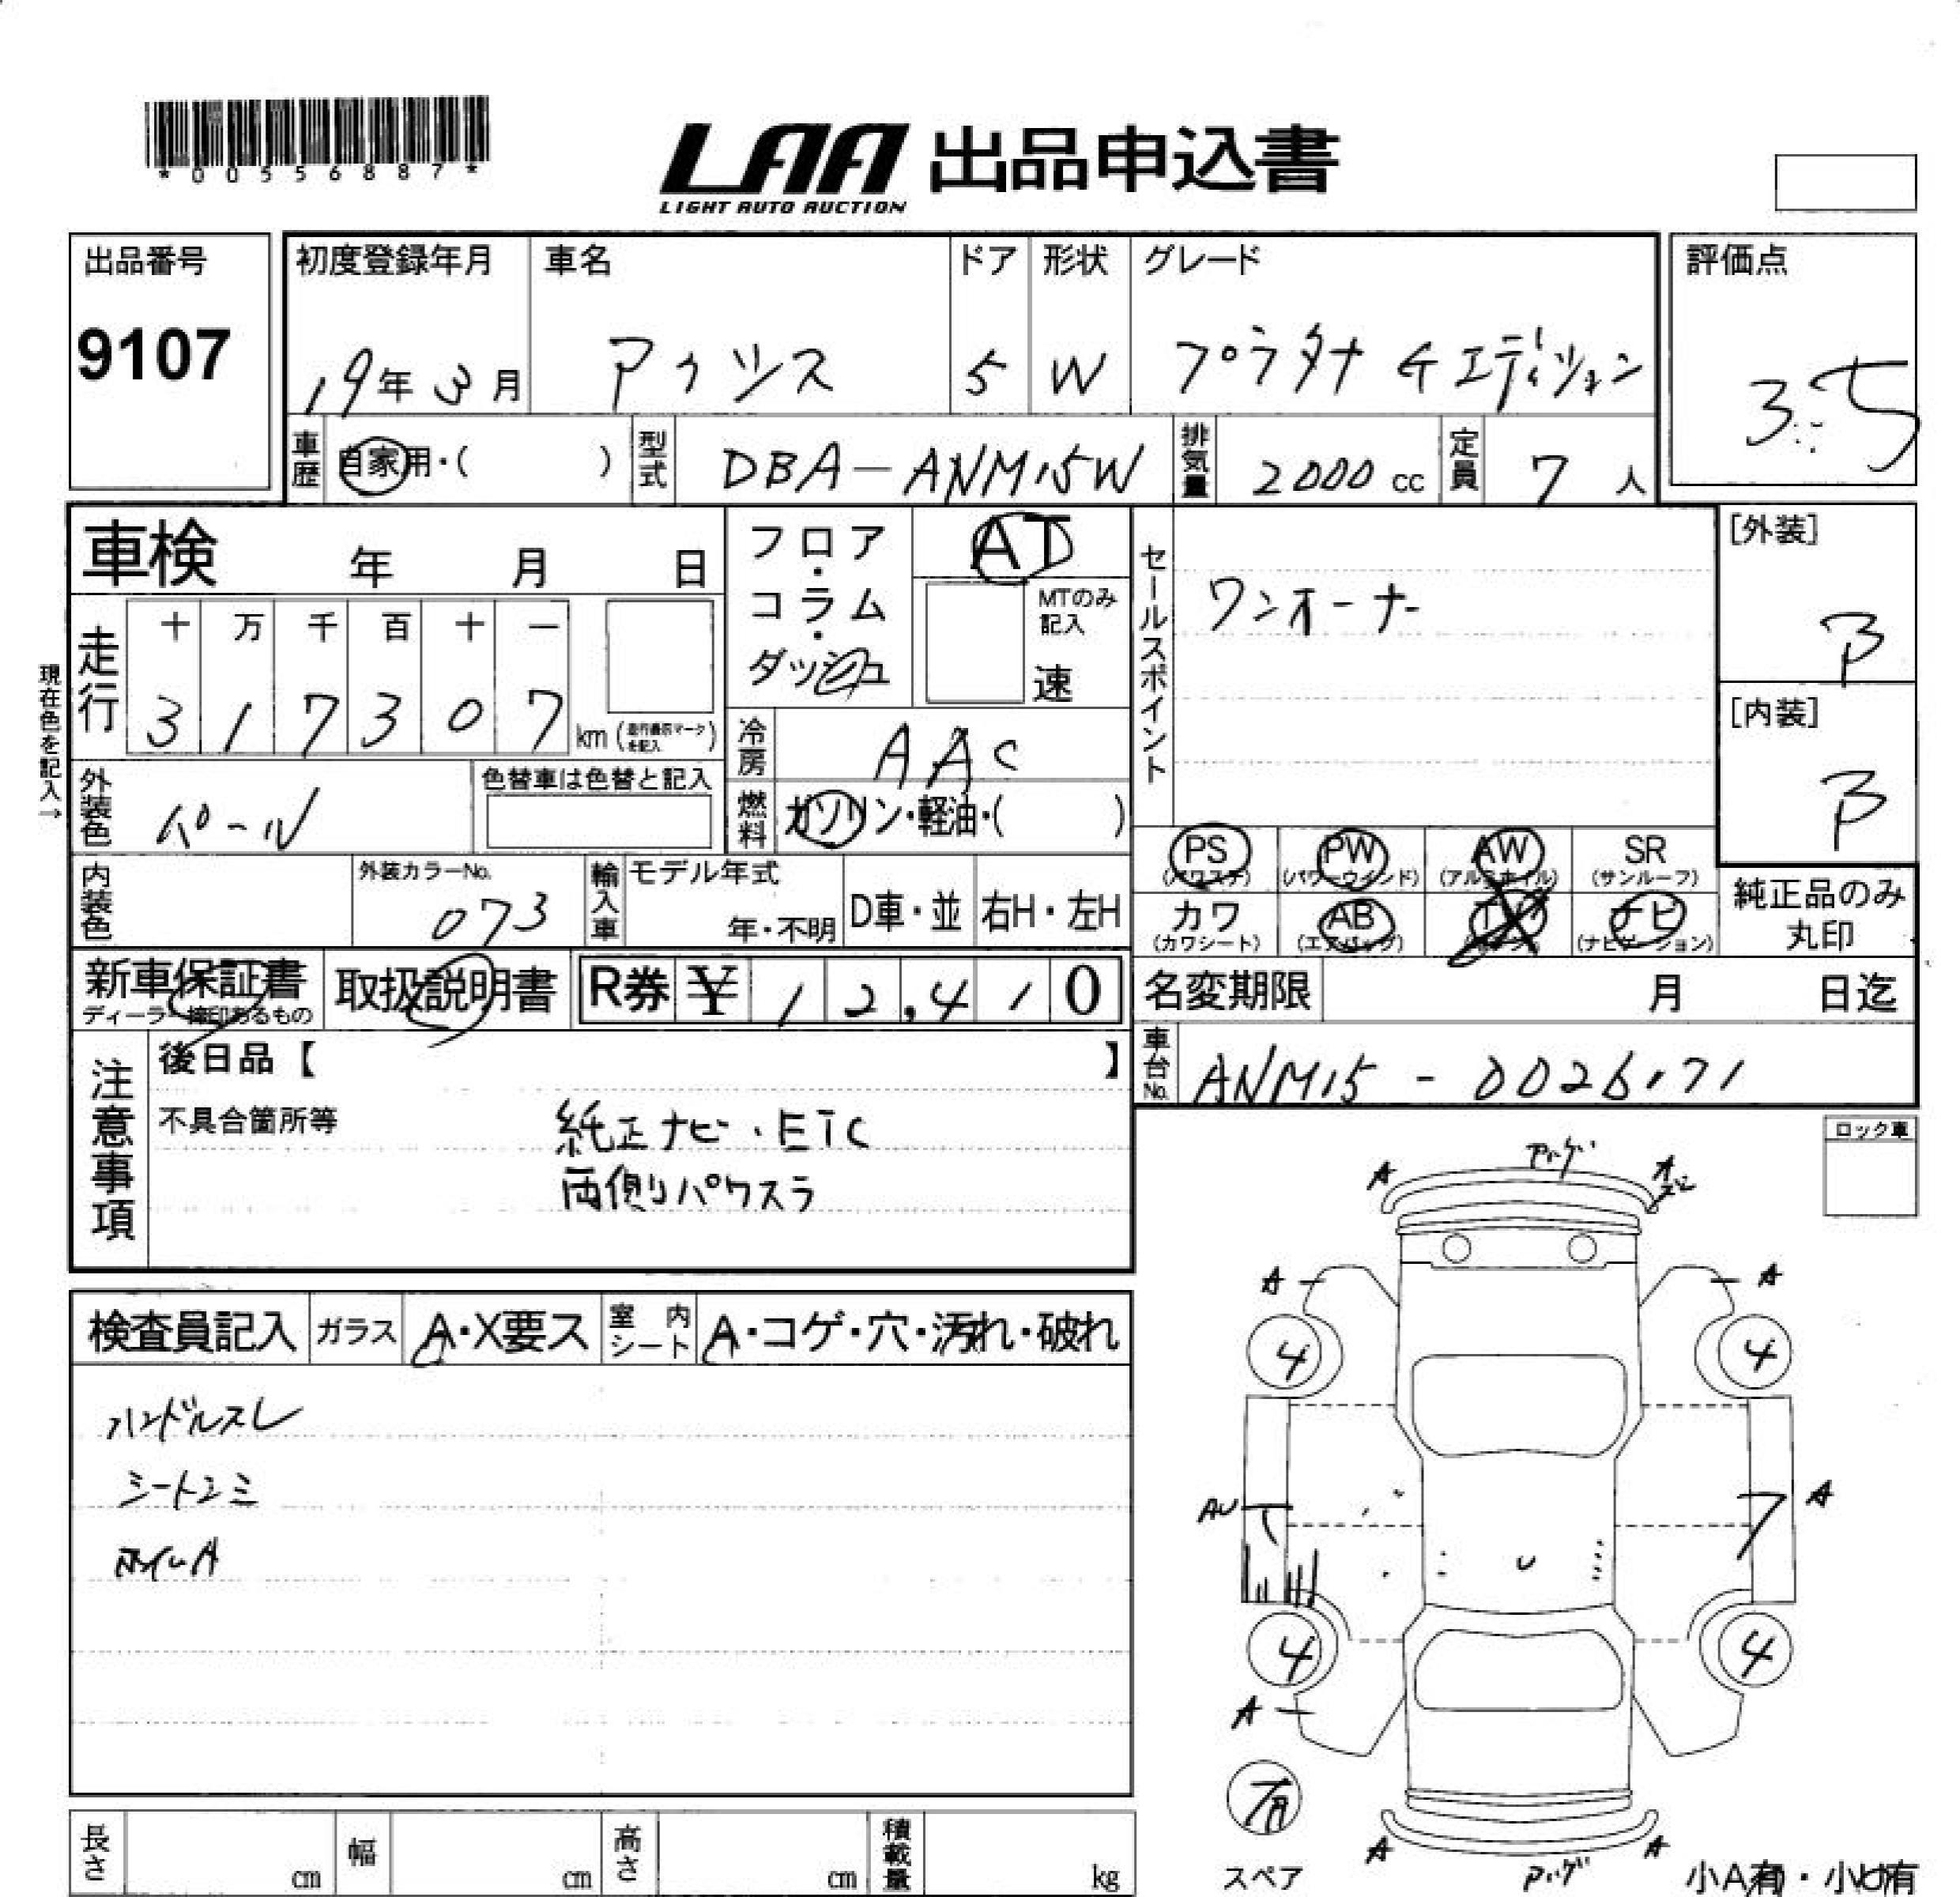 *00556887*
LAA 出品申込書
LIGHT AUTO AUCTION
出品番号
9107
初度登録年月
19年3月
車名
アイシス
ドア
5
形状
W
グレード
プラタナ Gエディション
評価点
3.5
車歴
自家用・( )
型式
DBA-ANM15W
排気量
2000 cc
定員
7 人
車検 年 月 日
フロア・コラム・ダッシュ
AT
MTのみ記入
速
セールスポイント
ワンオーナー
[外装]
B
[内装]
B
現在色を記入→
走行
十 万 千 百 十 一
3 1 7 3 0 7 km
冷房
AAC
燃料
ガソリン・軽油・( )
外装色
パール
色替車は色替と記入
内装色
外装カラーNo.
073
輸入車
モデル年式
年・不明
D車・並
右H・左H
PS
(パワステ)
PW
(パワーウインド)
AW
(アルミホイル)
SR
(サンルーフ)
カワ
(カワシート)
AB
(エアバッグ)
ナビ
(ナビゲーション)
純正品のみ
丸印
新車保証書
ディーラー捺印あるもの
取扱説明書
R券 ¥ 12,410
名変期限 月 日迄
車台No.
ANM15-0026171
注意事項
後日品【 】
不具合箇所等
純正ナビ・ETC
両側パワスラ
ロック車
検査員記入
ガラス
A・X要ス
室内シート
A・コゲ・穴・汚れ・破れ
ハンドルスレ
シートシミ
ホイルA
A
A
A
4
4
AU
A
4
4
A
有
スペア
A
A
小A有・小U有
長さ cm
幅 cm
高さ cm
積載量 kg